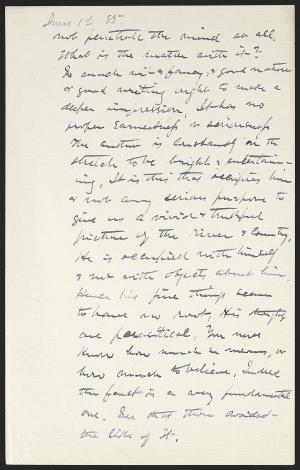 June 1st 85-
not penetrate the mind at all.
What is the matter with it?
So much wit & fancy, & good nature
& good writing ought to make a
deeper impression. It has no
proper earnestness or seriousness
The author is constantly on the
stretch to be bright & entertain-
ing. It is this that occupies him
& not any serious purpose to
give us a vivid & truthful
picture of the river & country.
He is occupied with himself
& not with objects about him.
Hence his fine things seem
to have no root, his
are parasitical. You never
know how much he means, or
how much to believe. Indeed
the fault is a very fundamental
one. See that thou avoidest
the like of it.